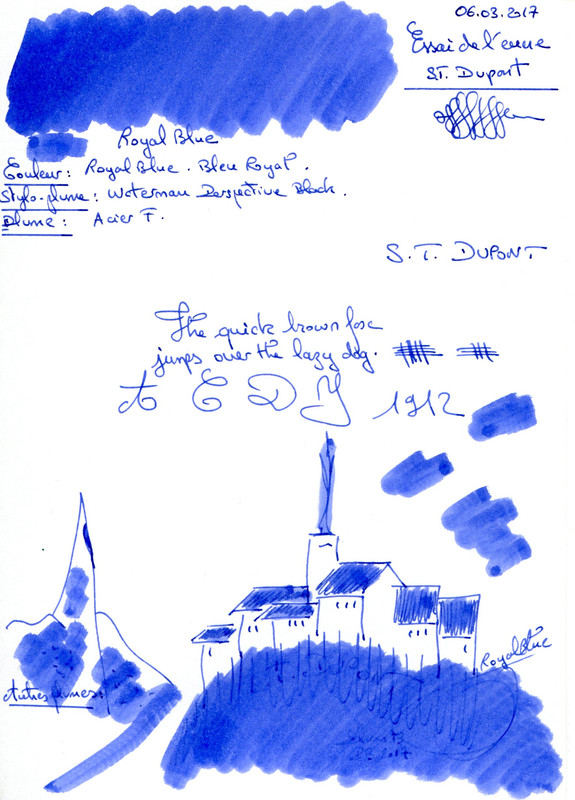 06.03.2017
Essai de l'encre
S.T. Dupont
Royal Blue
Couleur: Royal Blue. Bleu Royal.
Stylo-plume: Waterman Perspective Black.
Plume: Acier F.
S.T. DUPONT
The quick brown fox
jumps over the lazy dog.
1912
Royal Blue
Autres plumes: